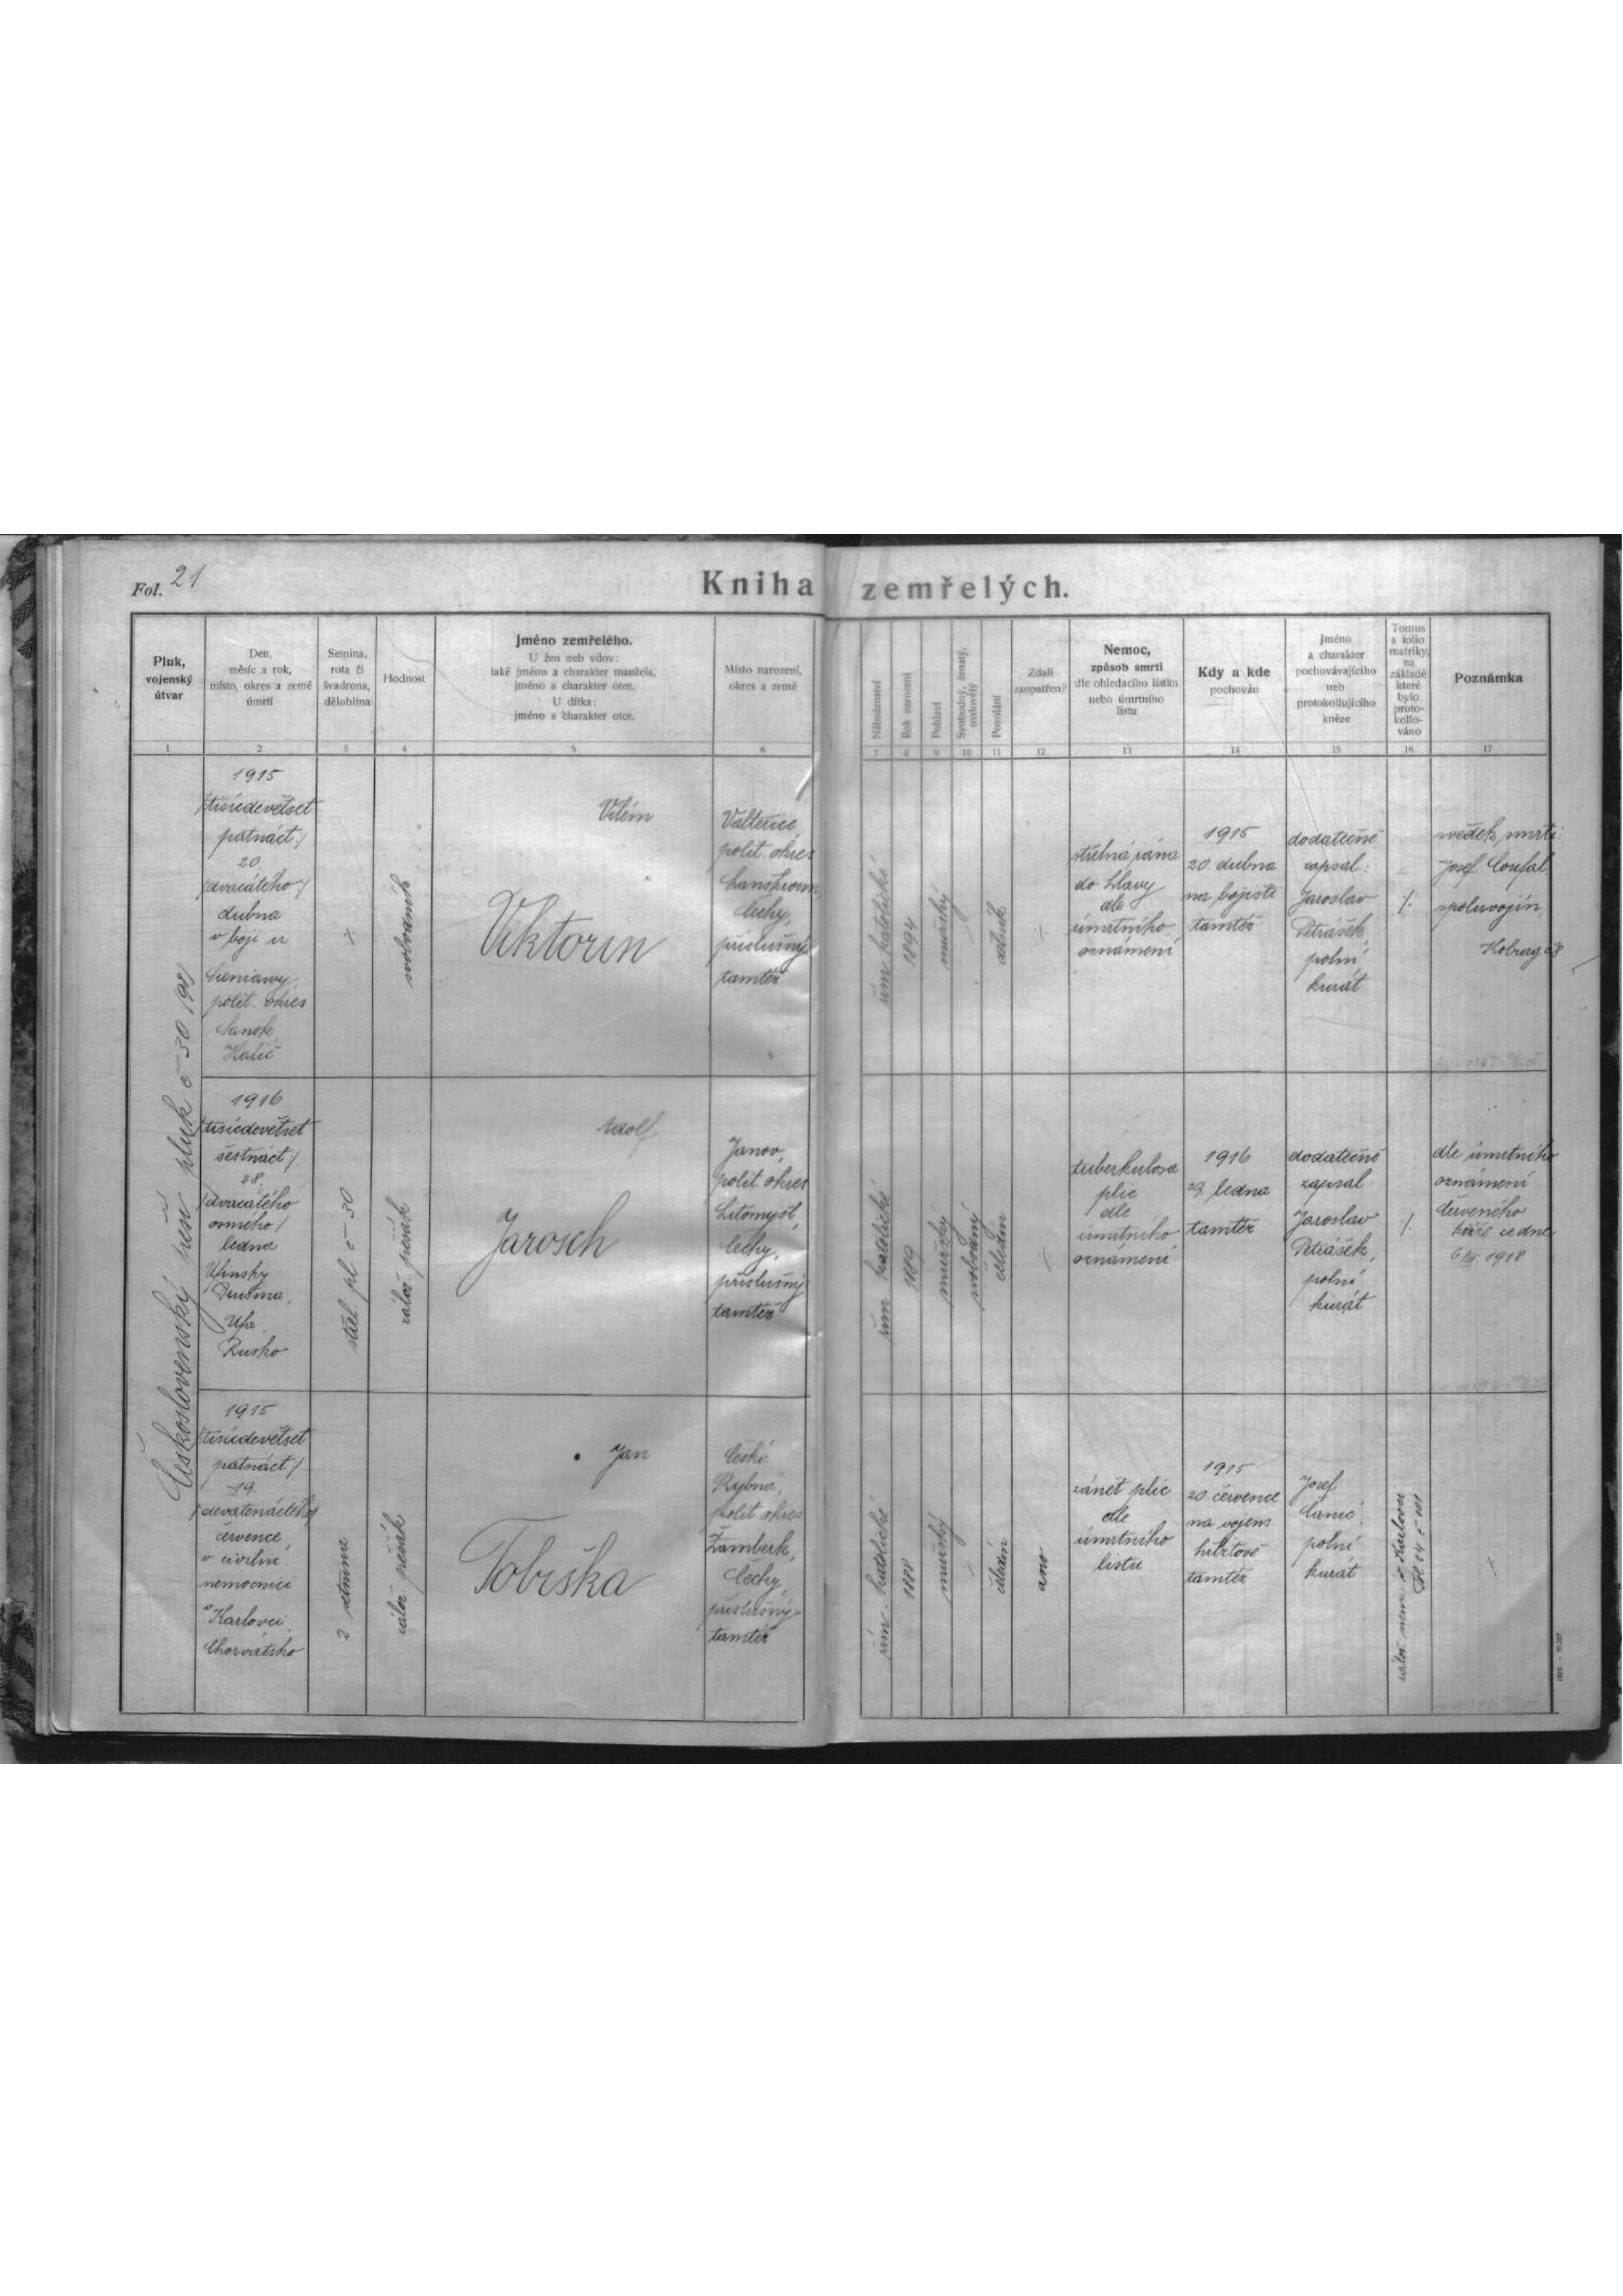 Fol. 21
Kniha zemřelých.
Pluk,
vojenský
útvar
Den,
měsíc a rok,
místo, okres a země
úmrtí
Setnina,
rota či
švadrona,
dělobitna
Hodnost
Jméno zemřelého.
U žen neb vdov:
také jméno a charakter manžela,
jméno a charakter otce.
U dítka:
jméno a charakter otce.
Místo narození,
okres a země
Náboženství
Rok narození
Pohlaví
Svobodný, ženatý,
ovdovělý
Povolání
Zdali
zaopatřen?
Nemoc,
způsob smrti
dle ohledacího lístku
nebo úmrtního
listu
Kdy a kde
pochován
Jméno
a charakter
pochovávajícího
neb
protokollujícího
kněze
Tomus
a folio
matriky,
na
základě
které
bylo
proto-
kollo-
váno
Poznámka
1 2 3 4 5 6 7 8 9 10 11 12 13 14 15 16 17
Československý pěší pluk č 30
1915
/tisícdevětset
patnáct/
20.
/dvacátého/
dubna
v boji u
Sieniawy,
polit. okres
Sanok
Halič
Vilém
Viktorin
Valteřice,
polit. okres
Lanškroun,
Čechy,
příslušný
tamtéž
řím. katolické
1894
mužský
dělník
střelná rána
do hlavy
dle
úmrtního
oznámení
1915
20. dubna
na bojišti
tamtéž
dodatečně
zapsal:
Jaroslav
Petrášek,
polní
kurát
%
svědek smrti:
Josef Coufal
spoluvojín
1916
/tisícdevětset
šestnáct/
28.
/dvacátého
osmého/
ledna
Ufa
Rusko
střel. pl č 30
pěšák
Adolf
Jarosch
Janov,
polit okres
Litomyšl,
Čechy,
příslušný
tamtéž
řím katolické
1889
mužský
svobodný
čeledín
tuberkulosa
plic
dle
úmrtního
oznámení
1916
29. ledna
tamtéž
dodatečně
zapsal:
Jaroslav
Petrášek,
polní
kurát
%
dle úmrtního
oznámení
červeného
kříže ze dne
1918
1915
/tisícdevětset
patnáct/
19.
/devatenáctého/
července,
v civilní
nemocnici
v Karlovci,
Chorvatsko
2 setnina
pěšák
Jan
Tobiška
České
Rybná,
polit okres
Žamberk,
Čechy,
příslušný
tamtéž
řím. katolické
1888
mužský
čeledín
ano
zánět plic
dle
úmrtního
listu
1915
20 července
na vojens.
hřbitově
tamtéž
Josef
polní
kurát